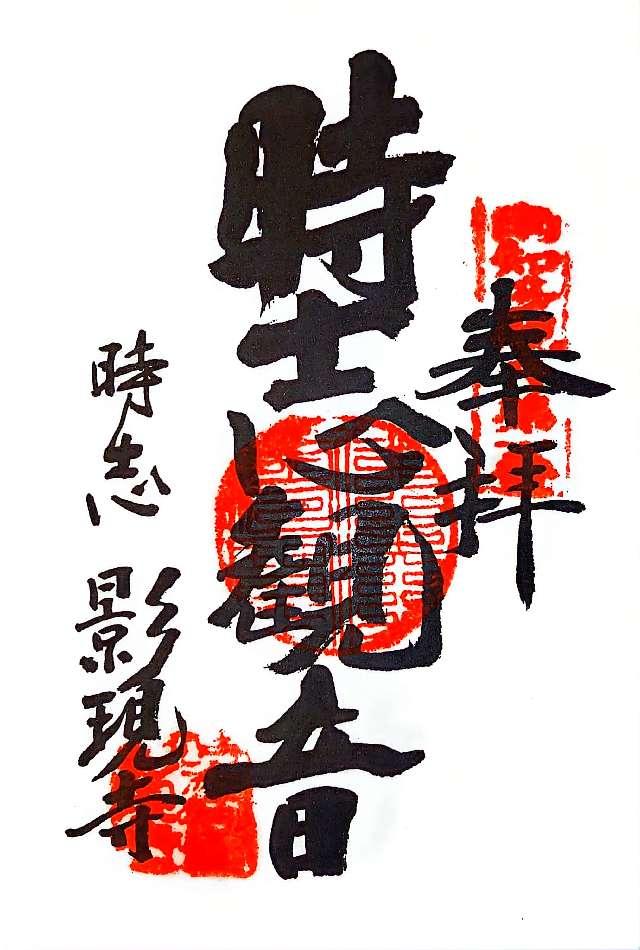 奉拝
時志観音
時志 影現寺